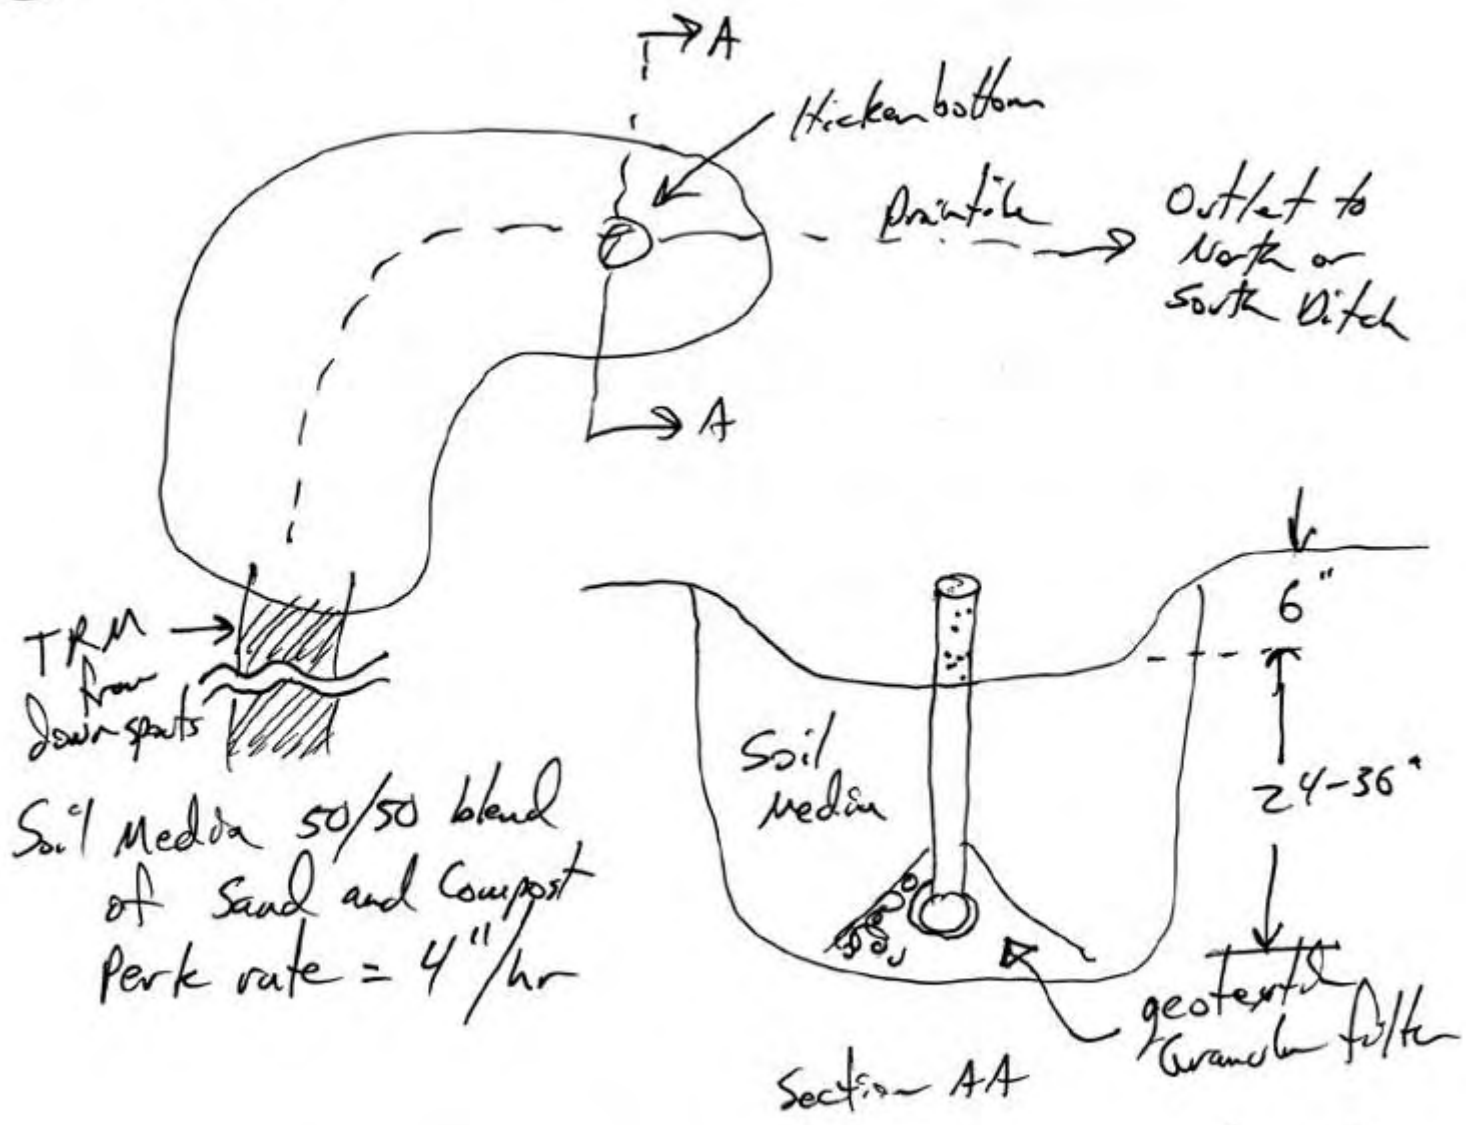 A
Hickenbottom
Draintile
Outlet to
North or
South Ditch
A
TRM
from
downspouts
Soil Media 50/50 blend
of Sand and Compost
Perk rate = 4"/hr
6"
Soil
Media
24-36"
geotextile
Granular filter
Section AA